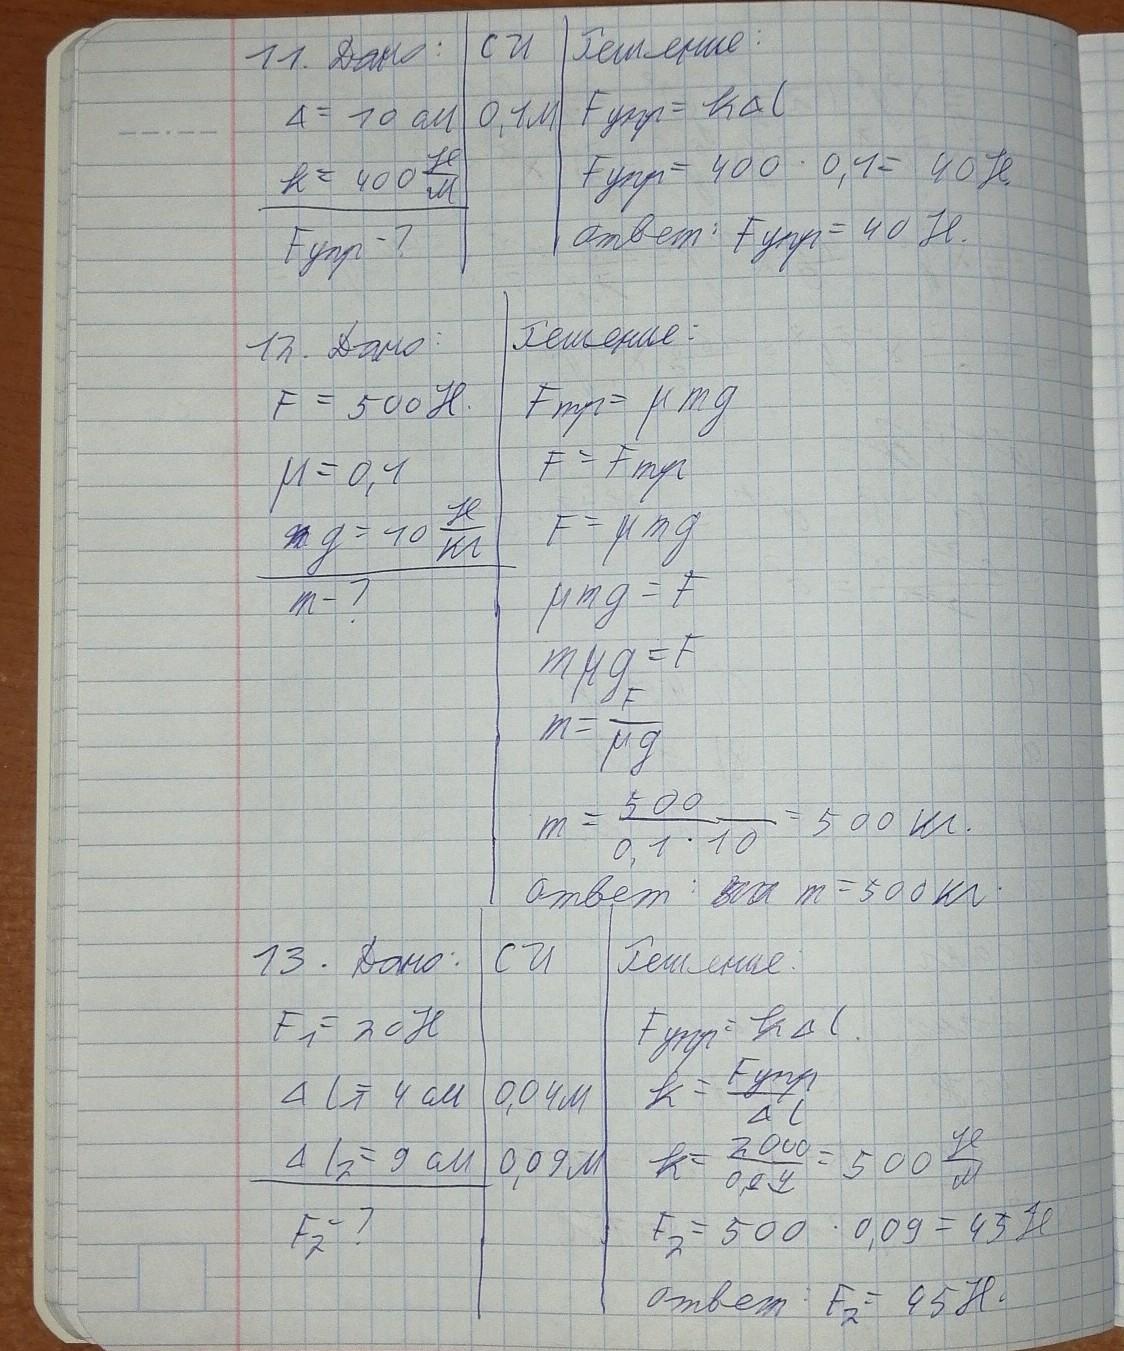 11. Дано: СИ Решение:
Δ = 10 см 0,1м Fупр = kΔl
k = 400 Н/м Fупр = 400 · 0,1 = 40 Н.
Fупр - ? Ответ: Fупр = 40 Н.
12. Дано: Решение:
F = 500 Н. Fтр = μmg
μ = 0,1 F = Fтр
g = 10 Н/кг F = μmg
m - ? μmg = F
mμg = F
m = F/μg
m = 500/0,1 · 10 = 500 кг.
Ответ: m = 500 кг.
13. Дано: СИ Решение:
F₁ = 20 Н Fупр = kΔl.
Δl = 4 см 0,04м k = Fупр/Δl
Δl₂ = 9 см 0,09м k = 2000/0,04 = 500 Н/м
F₂ - ? F₂ = 500 · 0,09 = 45 Н
Ответ: F₂ = 45 Н.